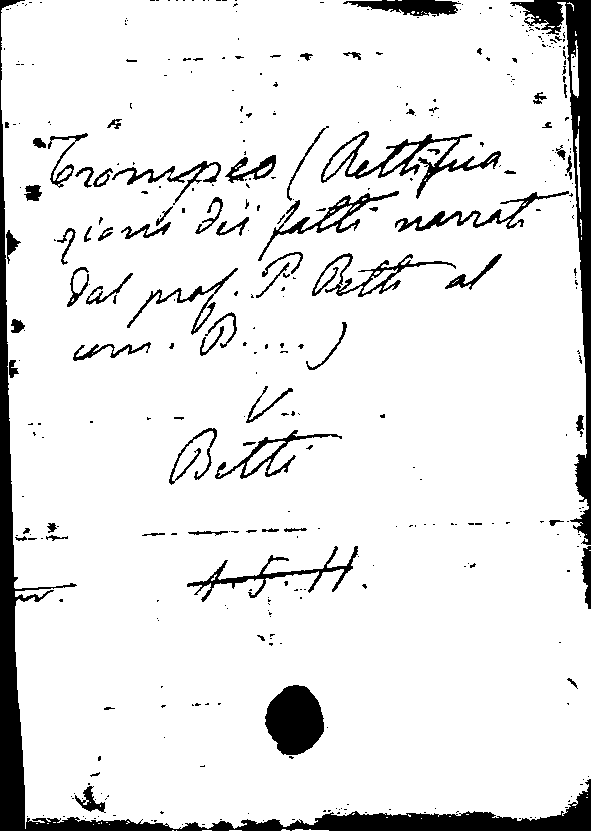 Trompeo (Rettifica-
zioni dei fatti narrati
dal prof. P. Betti al
com. B....)
V.
Betti
1.5.11.